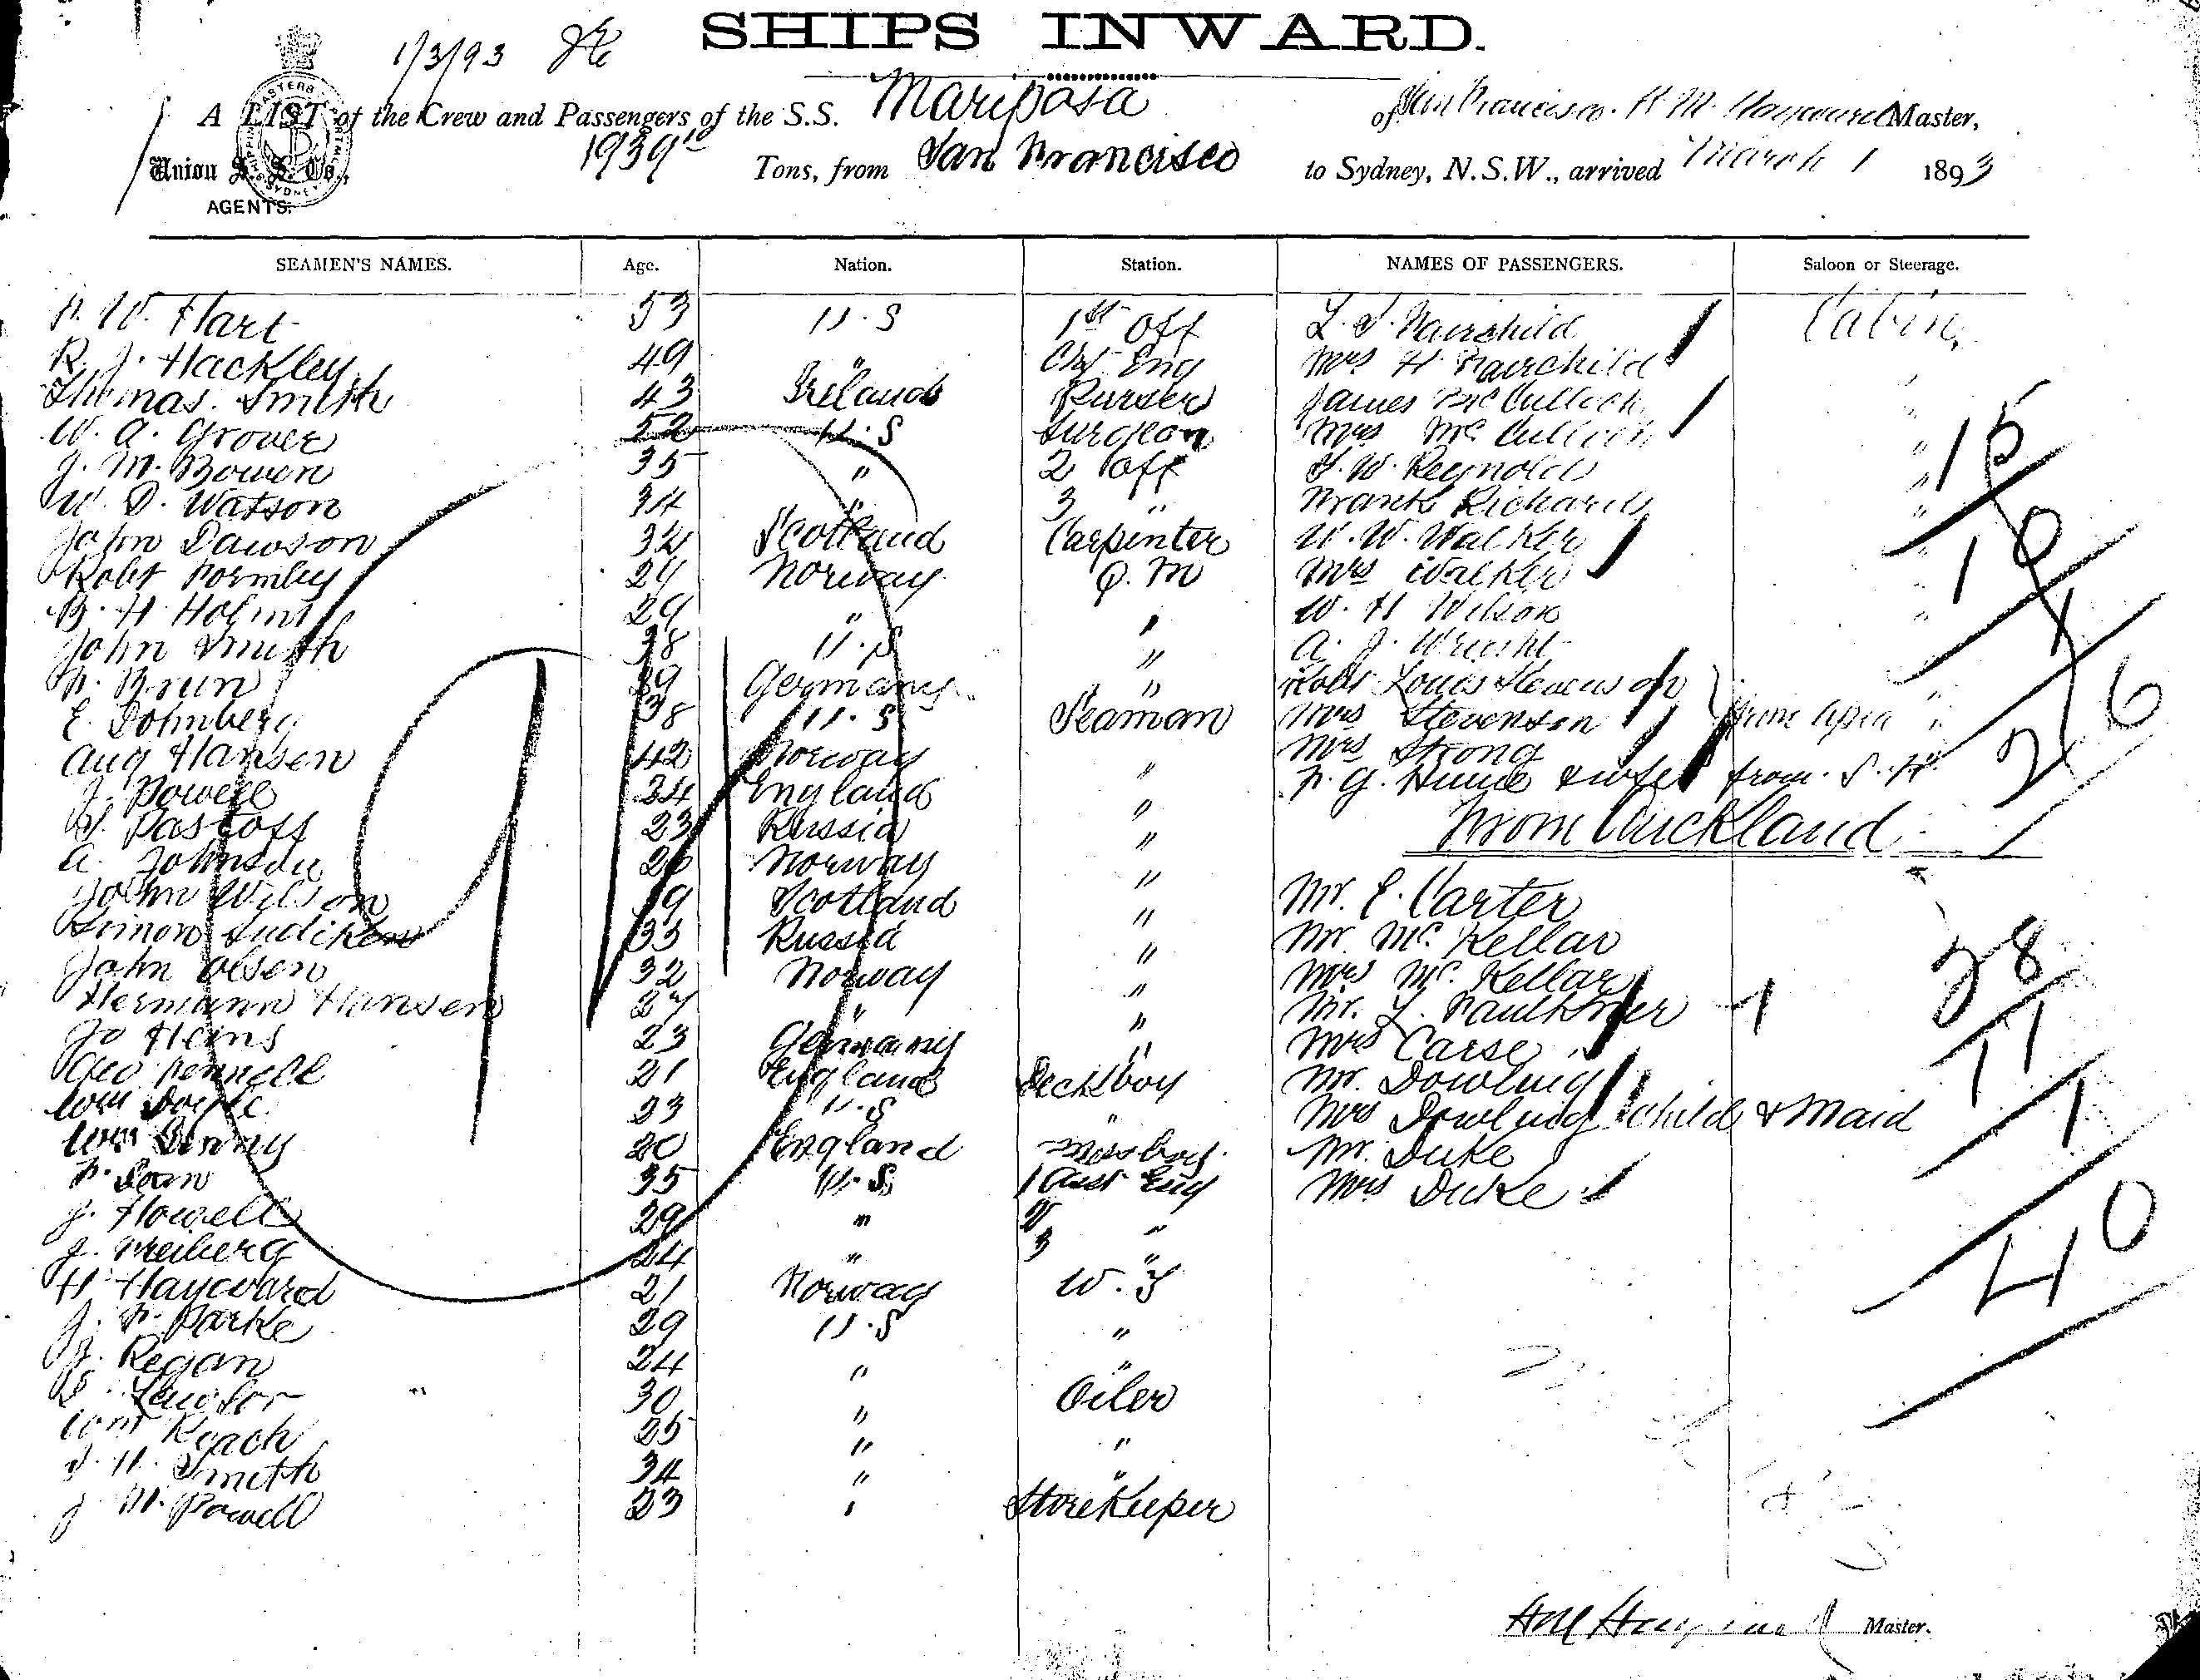 1/3/93
SHIPS INWARD.
A LIST of the Crew and Passengers of the S.S. Mariposa of San Francisco. H. M. Hayward Master,
Union S. S. Co., AGENTS. 1939 Tons, from San Francisco to Sydney, N.S.W., arrived March 1 1893
SEAMEN'S NAMES. Age. Nation. Station. NAMES OF PASSENGERS. Saloon or Steerage.
Hart 53 U.S 1st Off Fairchild Cabin
R. J. Hackley 49 " Chf Eng Mrs H Fairchild "
Thomas. Smith 43 Ireland Purser James McCulloch "
W. A. Grover 52 U.S Surgeon Mrs McCulloch "
J. M. Bowen 35 " 2 Off Reynolds "
W. D. Watson 34 " 3 " Frank Richards "
John Dawson 32 Scotland Carpenter W. W. Walker "
Robt Formby 24 Norway Q. M Mrs Walker "
B. H 29 " " W. H Wilson "
John Smith 38 U.S " A. J. Wright "
F. Brun 39 Germany " Robt Louis Stevenson "
E. Dohmberg 38 U.S Seaman Mrs Stevenson from Apia "
Aug Hansen 42 Norway " Mrs Strong
J. Powell 34 England " F. G. Hume & wife from S. F
Pastoff 23 Russia " From Auckland
A. Johnson 26 Norway "
John Wilson 39 Scotland " Mr. E. Carter
Simon 33 Russia " Mr. Mc. Kellar
John Olsen 32 Norway " Mrs Mc. Kellar
Hermann Hansen 27 " " Mr. Y. Faulkner 1
Jo Heins 23 Germany " Mrs Carse
Geo Pennell 21 England Deckboy Mr. Dowling
Wm Doyle 23 U.S " Mrs Dowling child & maid
Wm 20 England Messboy Mr. Duke
F. 35 U.S 1 Asst Eng Mrs Duke
J. Howell 29 " 2 "
J. Freiberg 24 " 3 "
H Hayward 21 Norway W. T
J. F. Parke 29 U.S "
J. Regan 24 " "
Lawlor 30 " Oiler
Wm Roach 25 " "
Smith 34 " "
J M. Powell 23 " Storekeeper
15
10
1
26
28
11
1
40
Master.